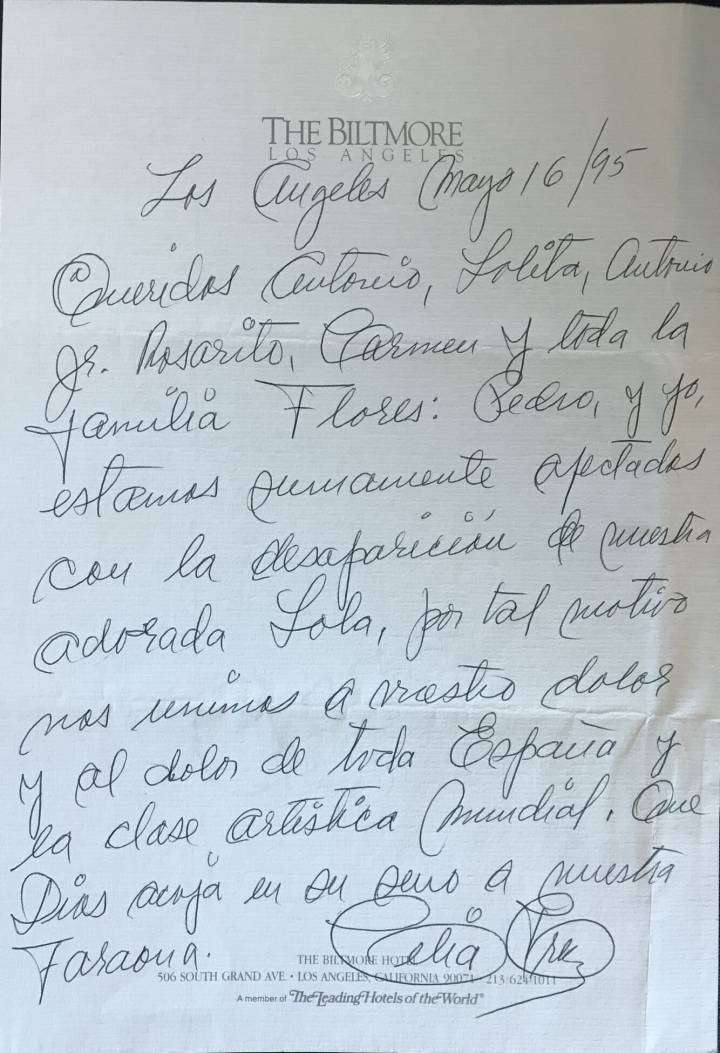 THE BILTMORE
LOS ANGELES
Los Angeles Mayo 16/95
Queridos Antonio, Lolita, Antonio
Jr. Rosarito, Carmen y toda la
familia Flores: Pedro, y yo,
estamos sumamente afectados
con la desaparición de nuestra
adorada Lola, por tal motivo
nos unimos a vuestro dolor
y al dolor de toda España y
la clase artística Mundial. Que
Dios acoja en su seno a nuestra
Faraona. Celia Cruz
THE BILTMORE HOTEL
506 SOUTH GRAND AVE. • LOS ANGELES, CALIFORNIA 90071 213/624-1011
A member of The Leading Hotels of the World®